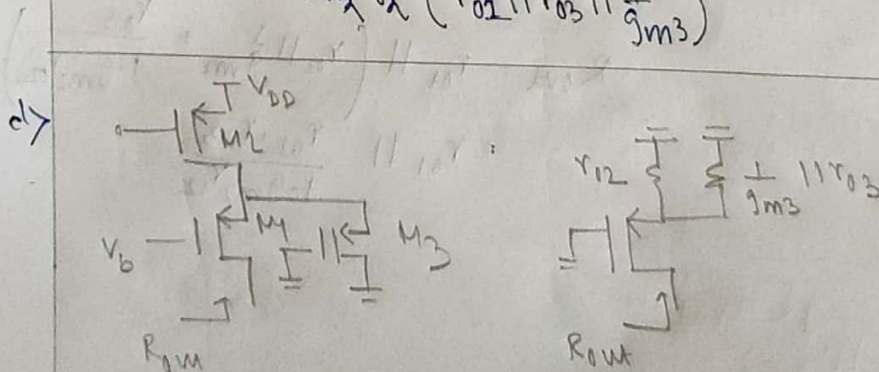 r02 ( r01 || r03 || 1/gm3 )
d>
VDD
M2
M1
M3
Vb
Rout
r02
1/gm3 || r03
Rout